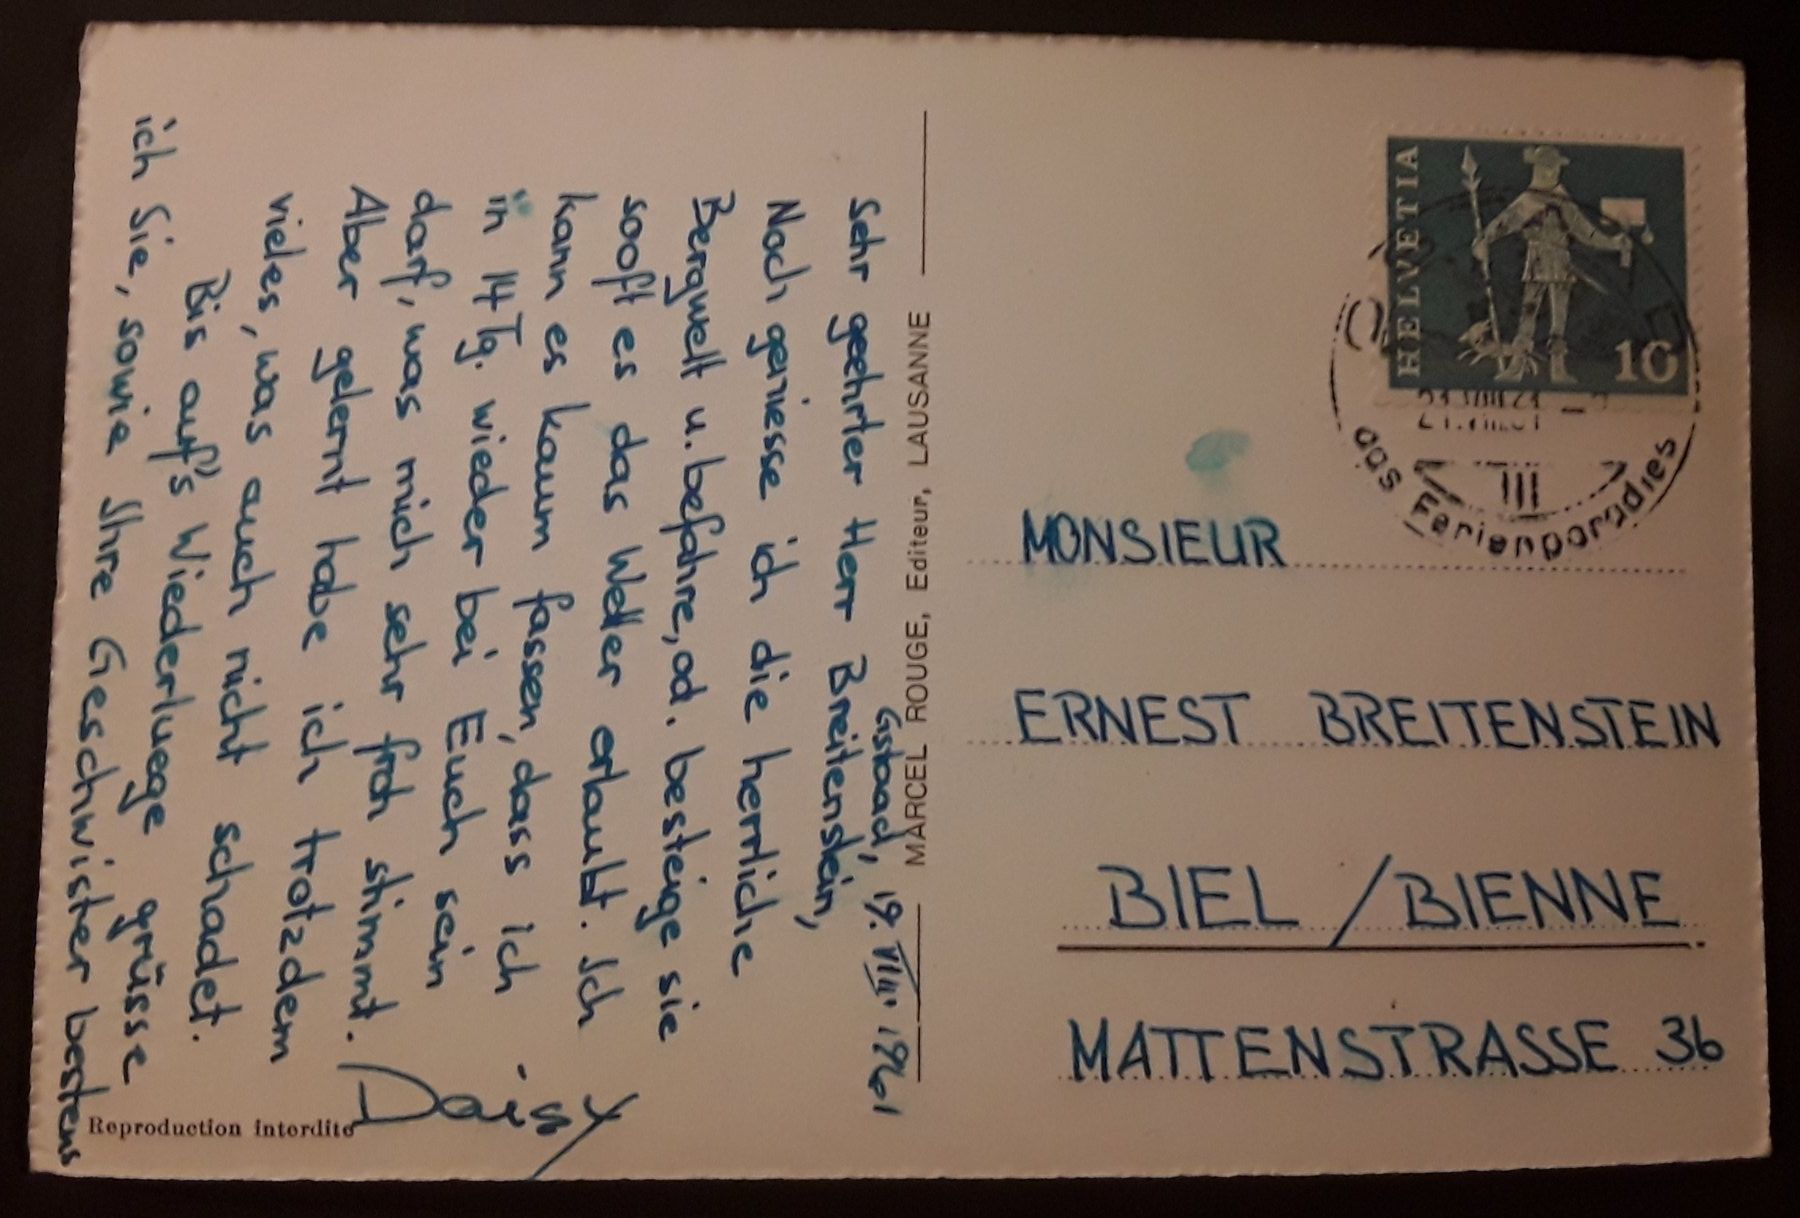 Gstaad, 19. VIII. 1961
Sehr geehrter Herr Breitenstein,
Noch geniesse ich die herrliche
Bergwelt u. befahre, od. besteige sie
sooft es das Wetter erlaubt. Ich
kann es kaum fassen, dass ich
in 14 Tg. wieder bei Euch sein
darf, was mich sehr froh stimmt.
Aber gelernt habe ich trotzdem
vieles, was auch nicht schadet.
Bis auf's Wiederluege grüsse
ich Sie, sowie Ihre Geschwister bestens
Daisy
Reproduction interdite
MARCEL ROUGE, Editeur, LAUSANNE
HELVETIA
10
das Ferienparadies
MONSIEUR
ERNEST BREITENSTEIN
BIEL / BIENNE
MATTENSTRASSE 36